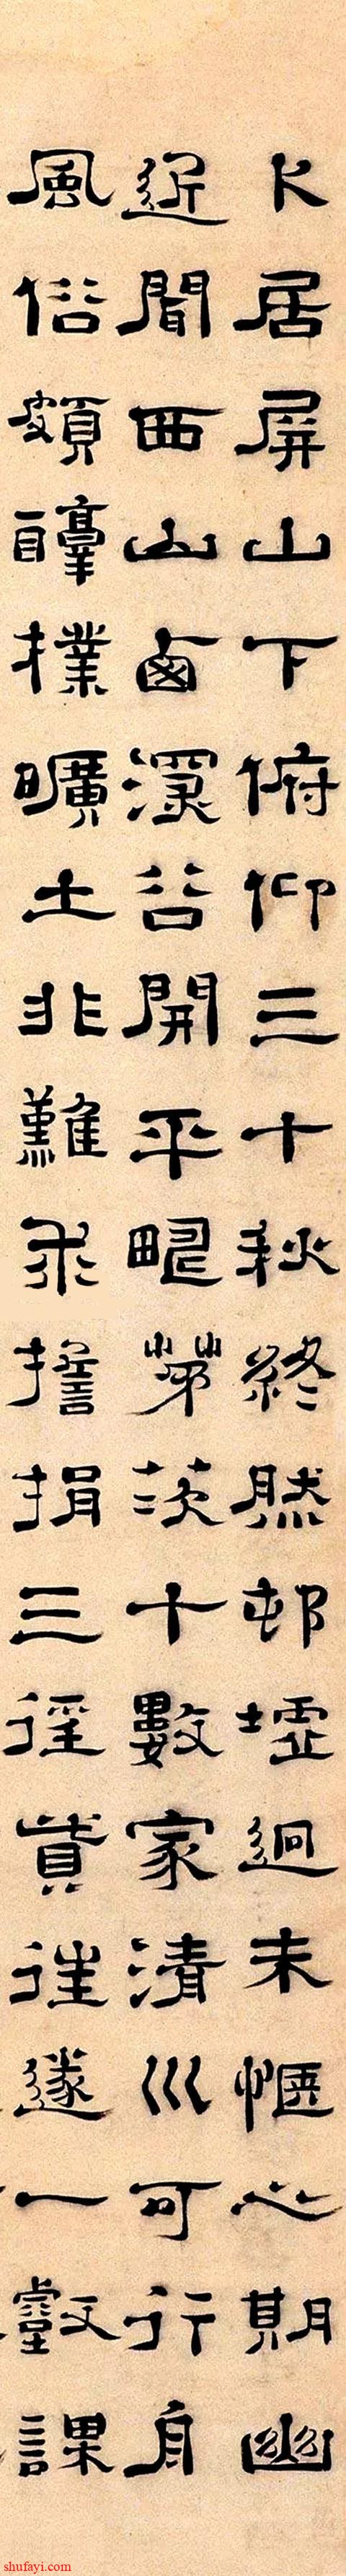 卜居屏山下俯仰三十秋終然邨墟迥未愜心期幽
近聞西山鹵深谷開平疇茅茨十數家清川可行舟
風俗頗醇撲曠土非難求擔捐三徑資往遂一壑課
shufayi.com